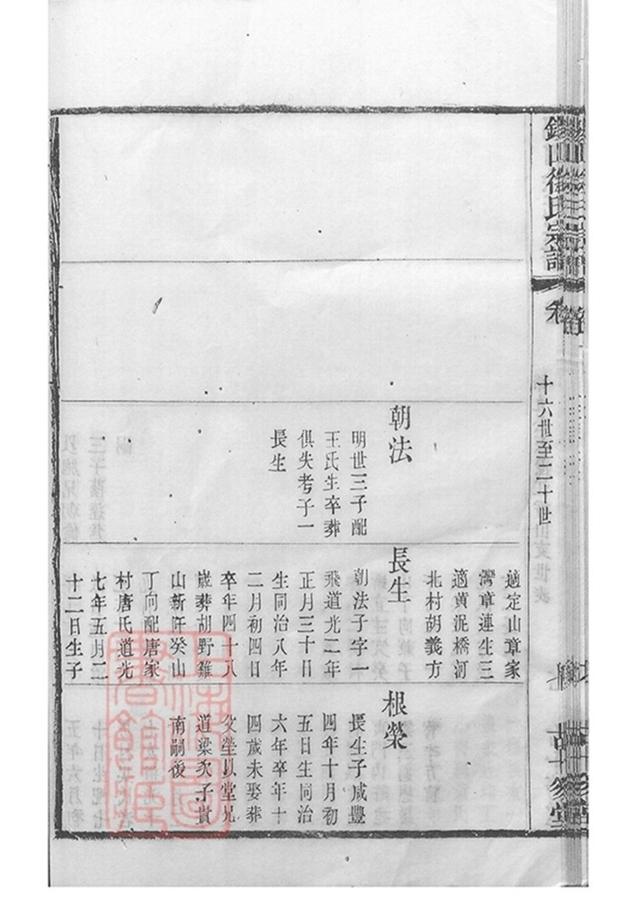 山徐氏宗譜
卷
十六世至二十世
朝法
明世三子配
王氏生卒葬
俱失考子一
長生
適定山章家
灣章連生三
適黃泥橋河
北村胡義方
長生
朝法子字一
飛道光二年
正月三十日
生同治八年
二月初四日
卒年四十八
歲葬胡野雞
山新阡癸山
丁向配唐家
村唐氏道光
七年五月二
十二日生子
根榮
長生子咸豐
四年十月初
五日生同治
六年卒年十
四歲未娶葬
父塋以堂兄
道梁次子貴
南嗣後